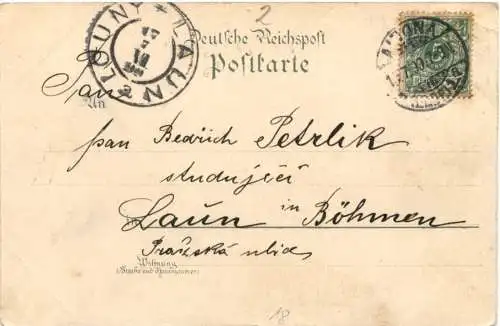 2
LOUNY * LAUN
Deutsche Reichspost
Postkarte
An
pan Bedřich Petrlik
studující
Laun in Böhmen
Pražská ulice
Wohnung
(Straße und Hausnummer)
18